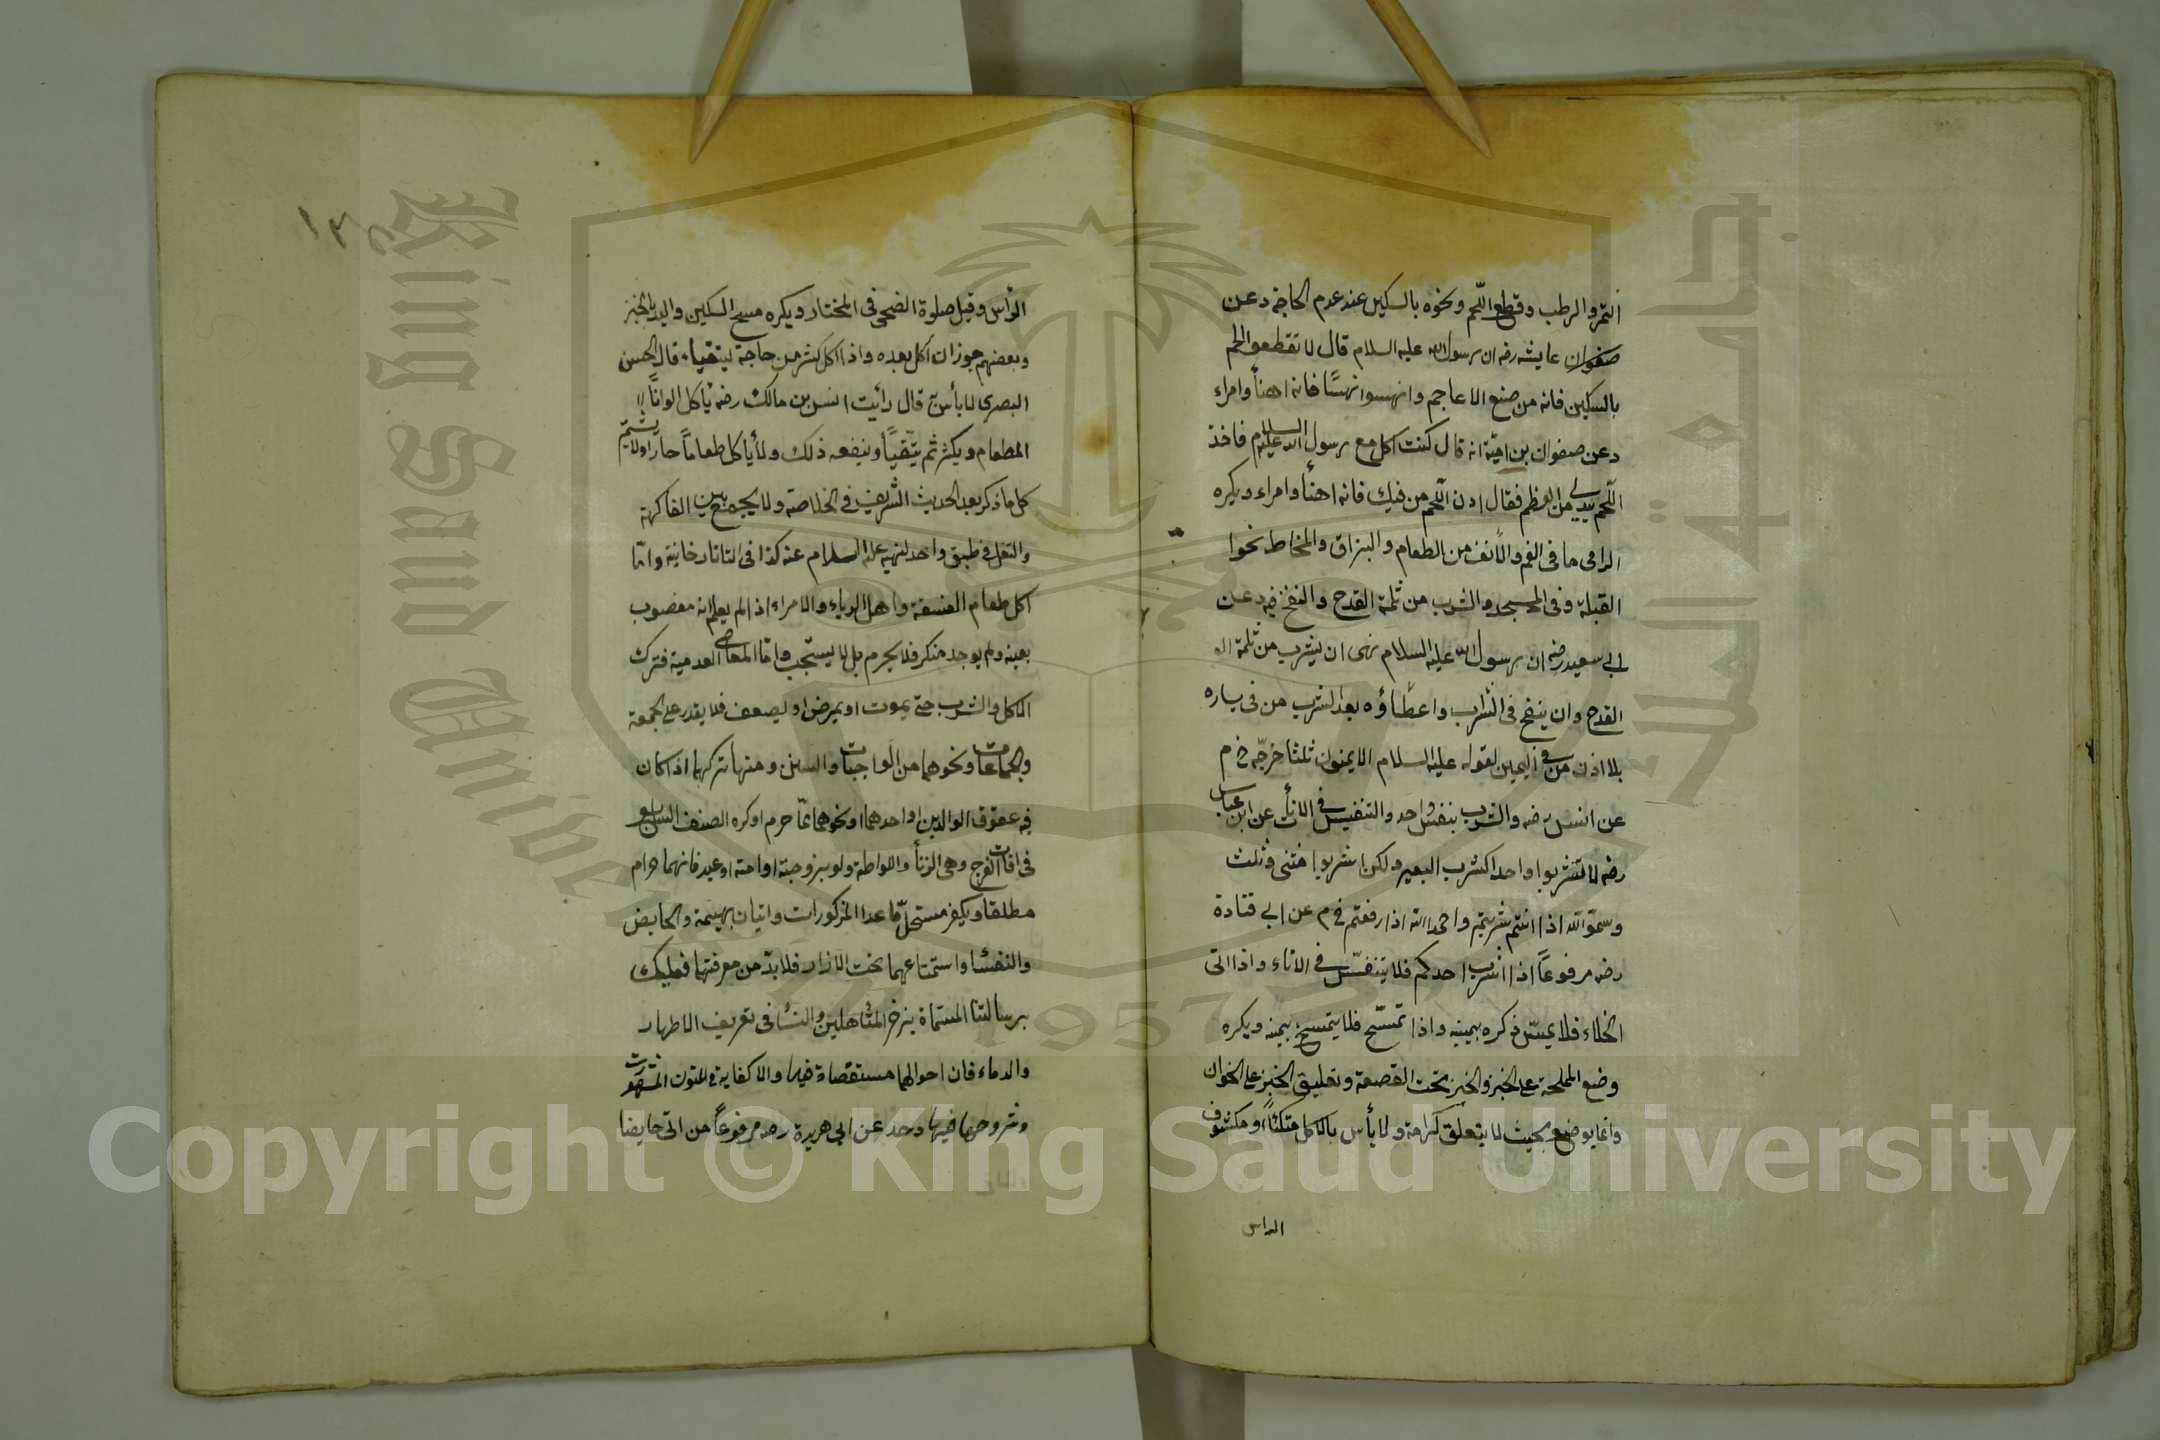 التمر والرطب وقطع اللحم ونحوه بالسكين عند عدم الحاجة د عن
صفوان عايشه رضه ان رسول الله عليه السلام قال لا تقطعو اللحم
بالسكين فانه من صنع الاعاجم وانهسوا نهسًا فانه اهنأ وامراء
د عن صفوان بن امية انه قال كنت اكل مع رسول الله عليه السلام فاخذ
اللحم بيدي من العظم فقال ادن اللحم من فيك فانه اهنأ وامراء ويكره
الرامى ما فى الفم والأنف من الطعام والبزاق والمخاط نحوا
القبلة وفى المسجد والشرب من ثلمة القدح والنفخ فيه د عن
ابى سعيد رضه ان رسول الله عليه السلام نهى ان يشرب من ثلمة
القدح وان ينفخ فى الشراب واعطاؤه بعد الشرب من فى يساره
بلا اذن من فى اليمين لقوله عليه السلام الايمنون ثلثا خرجه خ م
عن انس رضه والشرب بنفس واحد والتنفيس فى الاناء ت عن ابن عباس
رضه لا تشربوا واحدا كشرب البعير ولكن اشربوا مثنى وثلث
وسموّا الله اذا انتم شربتم واحمدا الله اذا رفعتم خ م عن ابى قتادة
رضه مرفوعاً اذا اشرب احدكم فلا يتنفسّ فى الاناء واذا اتى
الخلاء فلا يمسّ ذكره بيمينه واذا تمسّح فلا يتمسح بيمينه ويكره
وضع المملحة على الخبز والخبز تحت القصعة وتعليق الخبز على الخوان
وانما يوضع بحيث لا يتعلق كرامة ولا بأس بالاكل متكئاً او مكشوف
الراس
١٣٥
الرأس وقبل صلوة الضحى فى المختار ويكره مسح السكين واليد بالخبز
وبعضهم جوز ان اكل بعده واذا اكل كثر من حاجة ليتقيا قال الحسن
البصرى لا بأس به قال رأيت انس بن مالك رضه يأكل الواناً
المطعام ويكثر ثم يتقيأ وينفعه ذلك ولا يأكل طعاماً حاراً ولا يشمّ
كل ما ذكر بعد الحديث الشريف فى الخلاصة ولا يجمع بين الفاكهة
والثفل فى طبق واحد لنهيه عليه السلام عنه كذا فى التاتارخانية وامّا
اكل طعام الفسقة واهل الرياء والامراء اذا لم يعلم انه مغصوب
بعينه ولم يوجد منكر فلا يحرم بل لا يستحب واما المعاصى العدمية فترك
الاكل والشرب حتى يموت او يمرض او يضعف فلا يقدر على الجمعة
والجماعات ونحوهما من الواجبات والسنن ومنها تركهما اذا كان
فيه عقوق الوالدين او احدهما او نحوهما ممّا حرم او كره الصنف السابع
فى افات الفرج وهى الزنأ واللواطة ولو بزوجته او امته او عبد فانهما حرام
مطلقا ويكفر مستحلّ ما عدا المذكورات واتيان بهيمة والحايض
والنفسا واستمتاعهما تحت الازار فلا بدّ من معرفتهما فعليك
برسالتنا المسمّاة بذخر المتأهلين والنسأ فى تعريف الاطهار
والدماء فان احوالهما مستقصاة فيها والا كفاية فى المتون المشهورت
وشروحها فيها د حد عن ابى هريرة رضه مرفوعاً من اتى حايضا